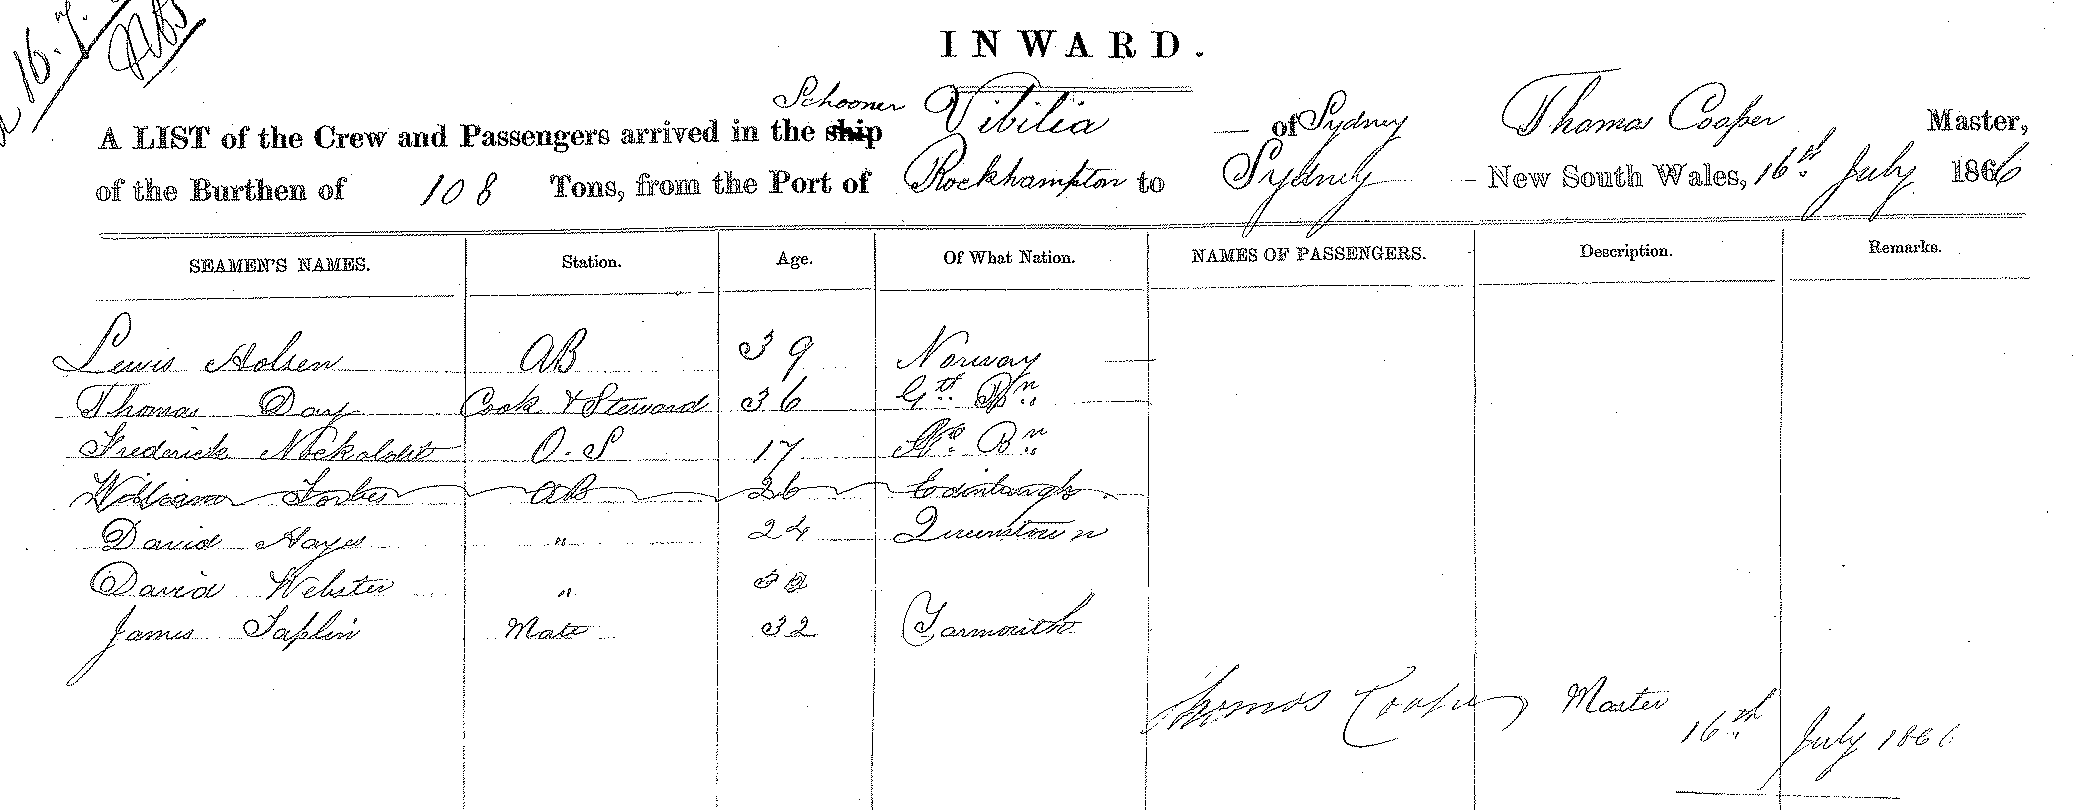 16.7.
INWARD.
Schooner
A LIST of the Crew and Passengers arrived in the ship Vibilia — of Sydney Thomas Cooper Master,
of the Burthen of 108 Tons, from the Port of Rockhampton to Sydney - New South Wales, 16th July 1866
SEAMEN'S NAMES. Station. Age. Of What Nation. NAMES OF PASSENGERS. Description. Remarks.
Lewis Holsen AB 39 Norway
Thomas Day Cook & Steward 36 Gt. Bn
Frederick O.S 17 Bn
William Forbes AB 26 Edinburgh
David Hayes " 24 Queenstown
David Webster "
James Taplin Mate 32 Yarmouth
Thomas Cooper Master
16th July 1866